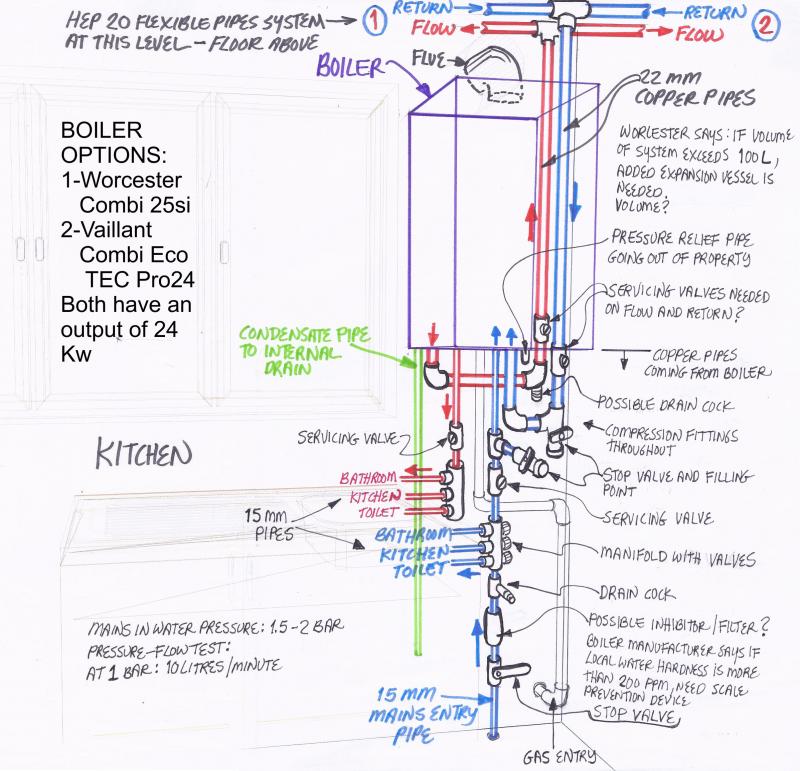 HEP 20 FLEXIBLE PIPES SYSTEM
AT THIS LEVEL - FLOOR ABOVE
1
RETURN
FLOW
RETURN
FLOW
2
FLUE
BOILER
22 MM
COPPER PIPES
BOILER
OPTIONS:
1-Worcester
Combi 25si
2-Vaillant
Combi Eco
TEC Pro24
Both have an
output of 24
Kw
WORLESTER SAYS: IF VOLUME
OF SYSTEM EXCEEDS 100L,
ADDED EXPANSION VESSEL IS
NEEDED.
VOLUME?
PRESSURE RELIEF PIPE
GOING OUT OF PROPERTY
SERVICING VALVES NEEDED
ON FLOW AND RETURN?
CONDENSATE PIPE
TO INTERNAL
DRAIN
COPPER PIPES
COMING FROM BOILER
POSSIBLE DRAIN COCK
COMPRESSION FITTINGS
THROUGHOUT
KITCHEN
SERVICING VALVE
STOP VALVE AND FILLING
POINT
BATHROOM
KITCHEN
TOILET
15 MM
PIPES
SERVICING VALVE
BATHROOM
KITCHEN
TOILET
MANIFOLD WITH VALVES
DRAIN COCK
MAINS IN WATER PRESSURE: 1.5-2 BAR
PRESSURE-FLOW TEST:
AT 1 BAR: 10 LITRES/MINUTE
POSSIBLE INHIBITOR/FILTER?
BOILER MANUFACTURER SAYS IF
LOCAL WATER HARDNESS IS MORE
THAN 200 PPM, NEED SCALE
PREVENTION DEVICE
STOP VALVE
15 MM
MAINS ENTRY
PIPE
GAS ENTRY